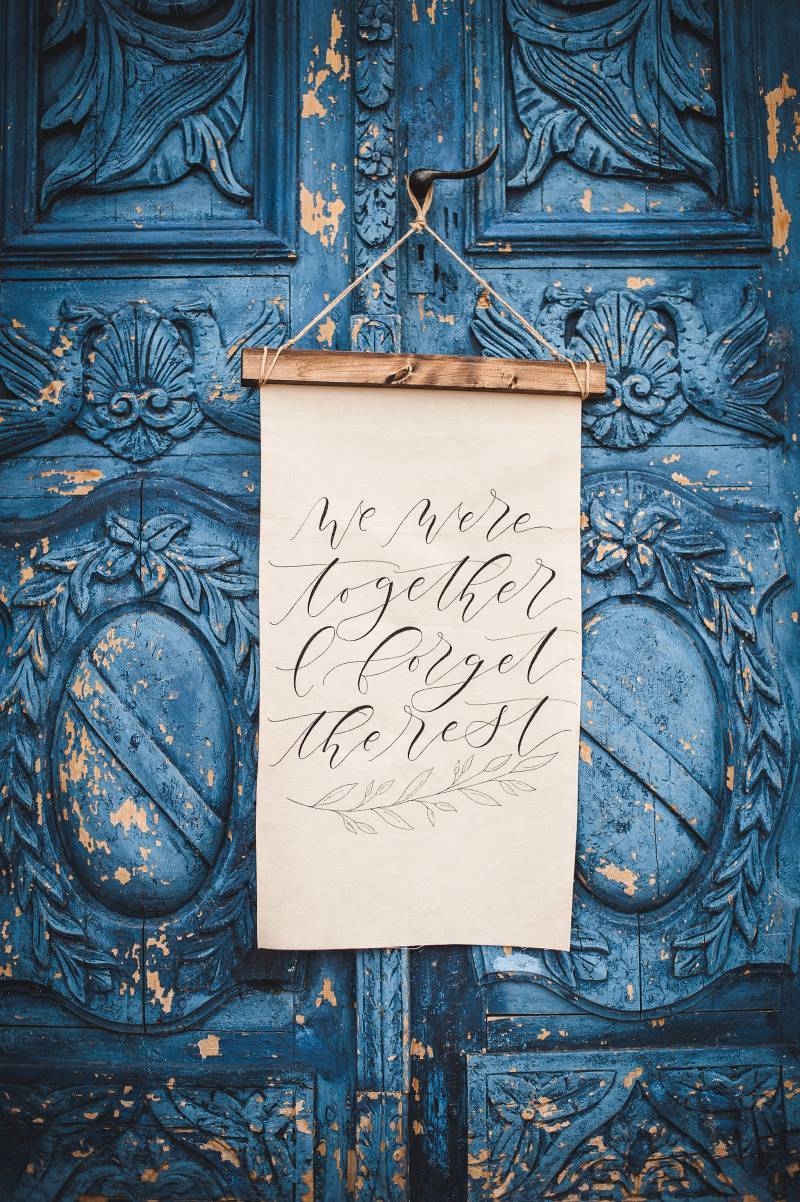 we were
together
I forget
the rest